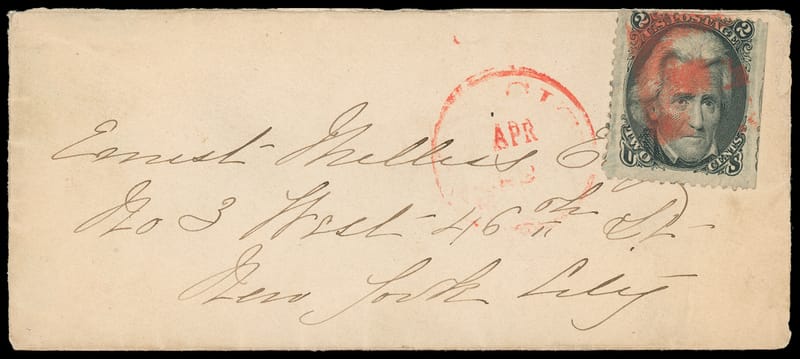 2 U.S. POSTAGE 2
TWO CENTS
APR
Ernest Mellus Esq
No 3 West 46th St
New York City